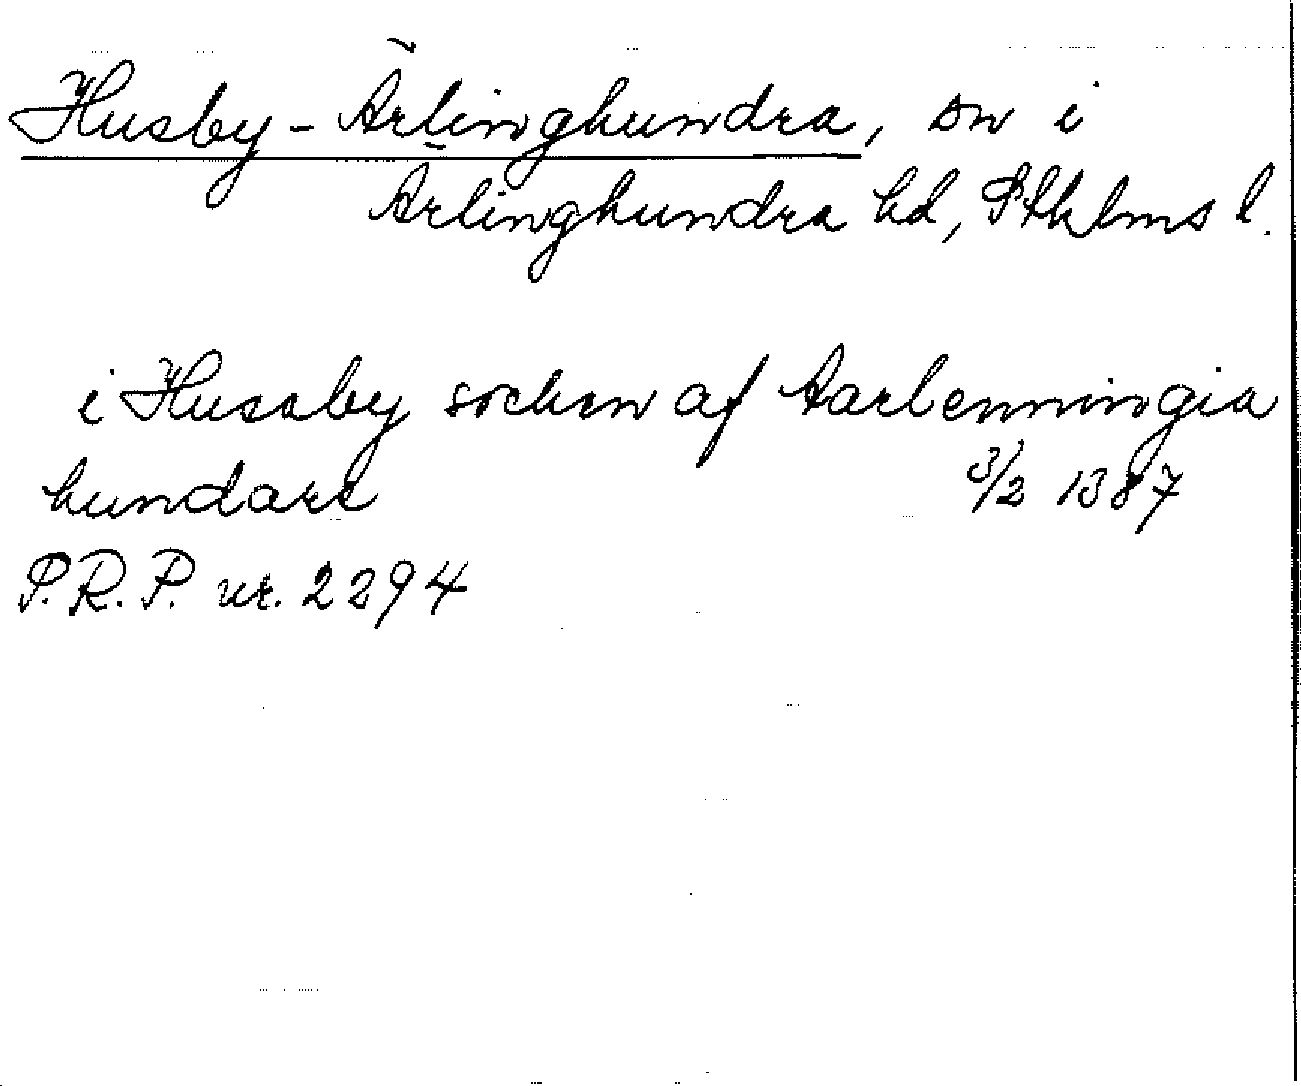 Husby-Ärlinghundra, sn i
Ärlinghundra hd, Sthlms l.
i Husaby sochen af Aarlenningia
hundare 3/2 1387
P.R.P. nr. 2294